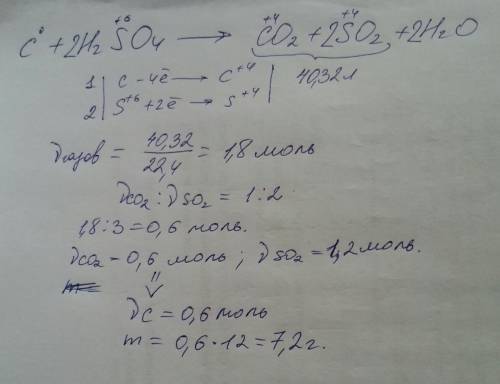 C⁰ + 2H₂S⁺⁶O₄ → C⁺⁴O₂ + 2S⁺⁴O₂ + 2H₂O
1 | C - 4ē → C⁺⁴ | 40,32л
2 | S⁺⁶ + 2ē → S⁺⁴
νгазов = 40,32/22,4 = 1,8 моль
νCO₂ : νSO₂ = 1:2
1,8 : 3 = 0,6 моль.
νCO₂ - 0,6 моль ; νSO₂ = 1,2 моль.
νC = 0,6 моль
m = 0,6 · 12 = 7,2 г.